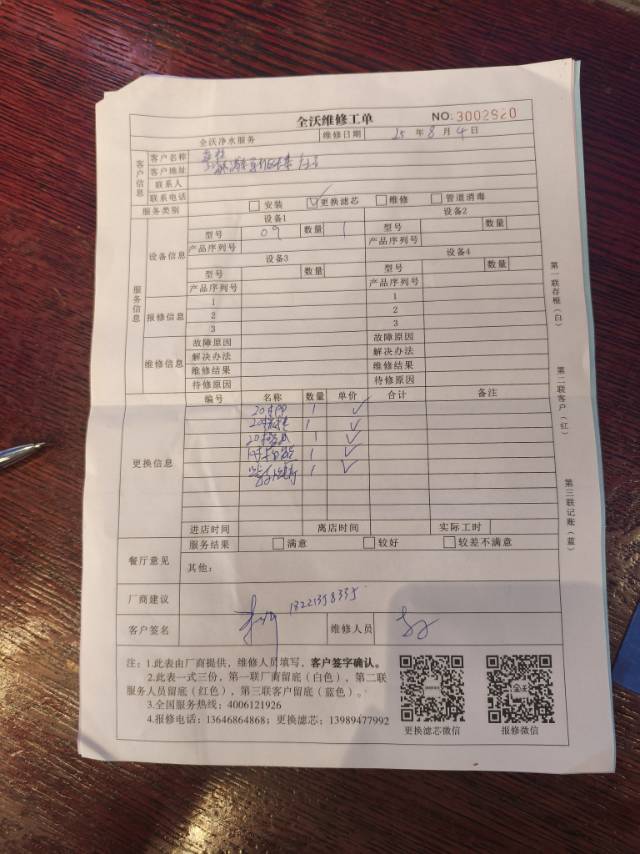 全沃维修工单 NO:3002920
全沃净水服务 维修日期 25 年 8 月 4 日
客户信息
客户名称
客户地址
联系人
联系电话
服务类别 安装 更换滤芯 维修 管道消毒
服务信息
设备信息
设备1 设备2
型号 09 数量 1 型号 数量
产品序列号 产品序列号
设备3 设备4
型号 数量 型号 数量
产品序列号 产品序列号
报修信息
1 1
2 2
3 3
维修信息
故障原因 故障原因
解决办法 解决办法
维修结果 维修结果
待修原因 待修原因
更换信息
编号 名称 数量 单价 合计 备注
20寸PP 1 ✓
20寸 1 ✓
20寸 1 ✓
1 ✓
1 ✓
进店时间 离店时间 实际工时
餐厅意见
服务结果 满意 较好 较差不满意
其他:
厂商建议
客户签名 18221358335 维修人员
注: 1.此表由厂商提供, 维修人员填写, 客户签字确认。
2.此表一式三份, 第一联厂商留底(白色), 第二联
服务人员留底(红色), 第三联客户留底(蓝色)。
3.全国服务热线: 4006121926
4.报修电话: 13646864868; 更换滤芯: 13989477992
更换滤芯微信 报修微信
第一联存根(白)
第二联客户(红)
第三联记账(蓝)